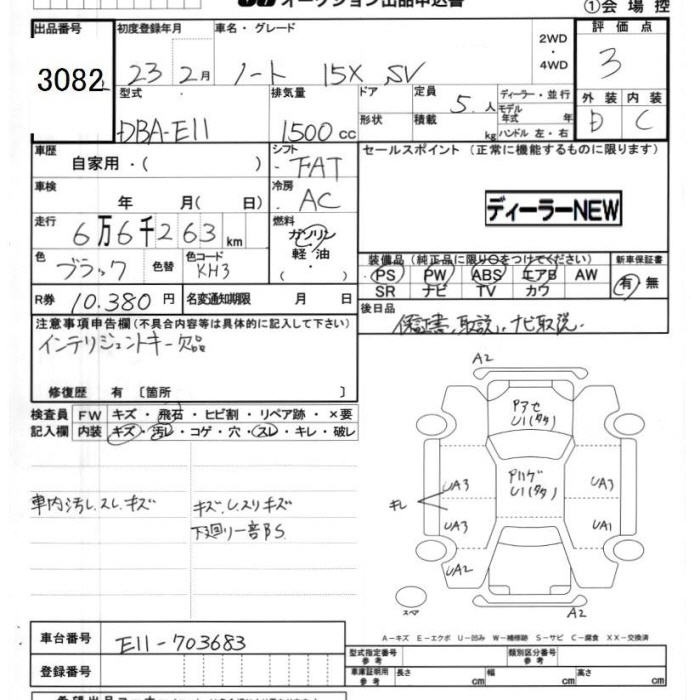 オークション出品申込書
①会場控
出品番号 初度登録年月 車名・グレード 2WD・4WD 評価点
3082 23 2月 ノート 15X SV 3
型式 排気量 ドア 定員 5人 ディーラー・並行 外装 内装
DBA-E11 1500cc 形状 積載 kg モデル年式 年 ハンドル 左・右 D C
車歴 自家用・( ) シフト FAT セールスポイント (正常に機能するものに限ります)
車検 年 月( 日) 冷房 AC ディーラーNEW
走行 6万6千263km 燃料 ガソリン 軽油
装備品 (純正品に限り○をつけてください) 新車保証書
色 ブラック 色替 色コード KH3 ・( )
PS PW ABS エアB AW 有・無
SR ナビ TV カワ
R券 10.380円 名変通知期限 月 日
後日品 保証書、取説、ナビ取説.
注意事項申告欄(不具合内容等は具体的に記入して下さい)
インテリジェントキー欠品
修復歴 有 〔箇所 〕
検査員記入欄 FW キズ・飛石・ヒビ割・リペア跡・×要
内装 キズ・汚レ・コゲ・穴・スレ・キレ・破レ
車内汚レ.スレ.キズ
キズ.レスリキズ
下廻り一部BS
A2
Pアセ
U1(タタ)
Pハゲ
U1(タタ)
UA3 UA3
キレ
UA3 UA1
UA2
スペア
A2
A-キズ E-エクボ U-凹み W-補修跡 S-サビ C-腐食 XX-交換済
車台番号 E11-703683
型式指定番号 参考 類別区分番号 参考
登録番号
車庫証明用 参考 長さ cm 幅 cm 高さ cm